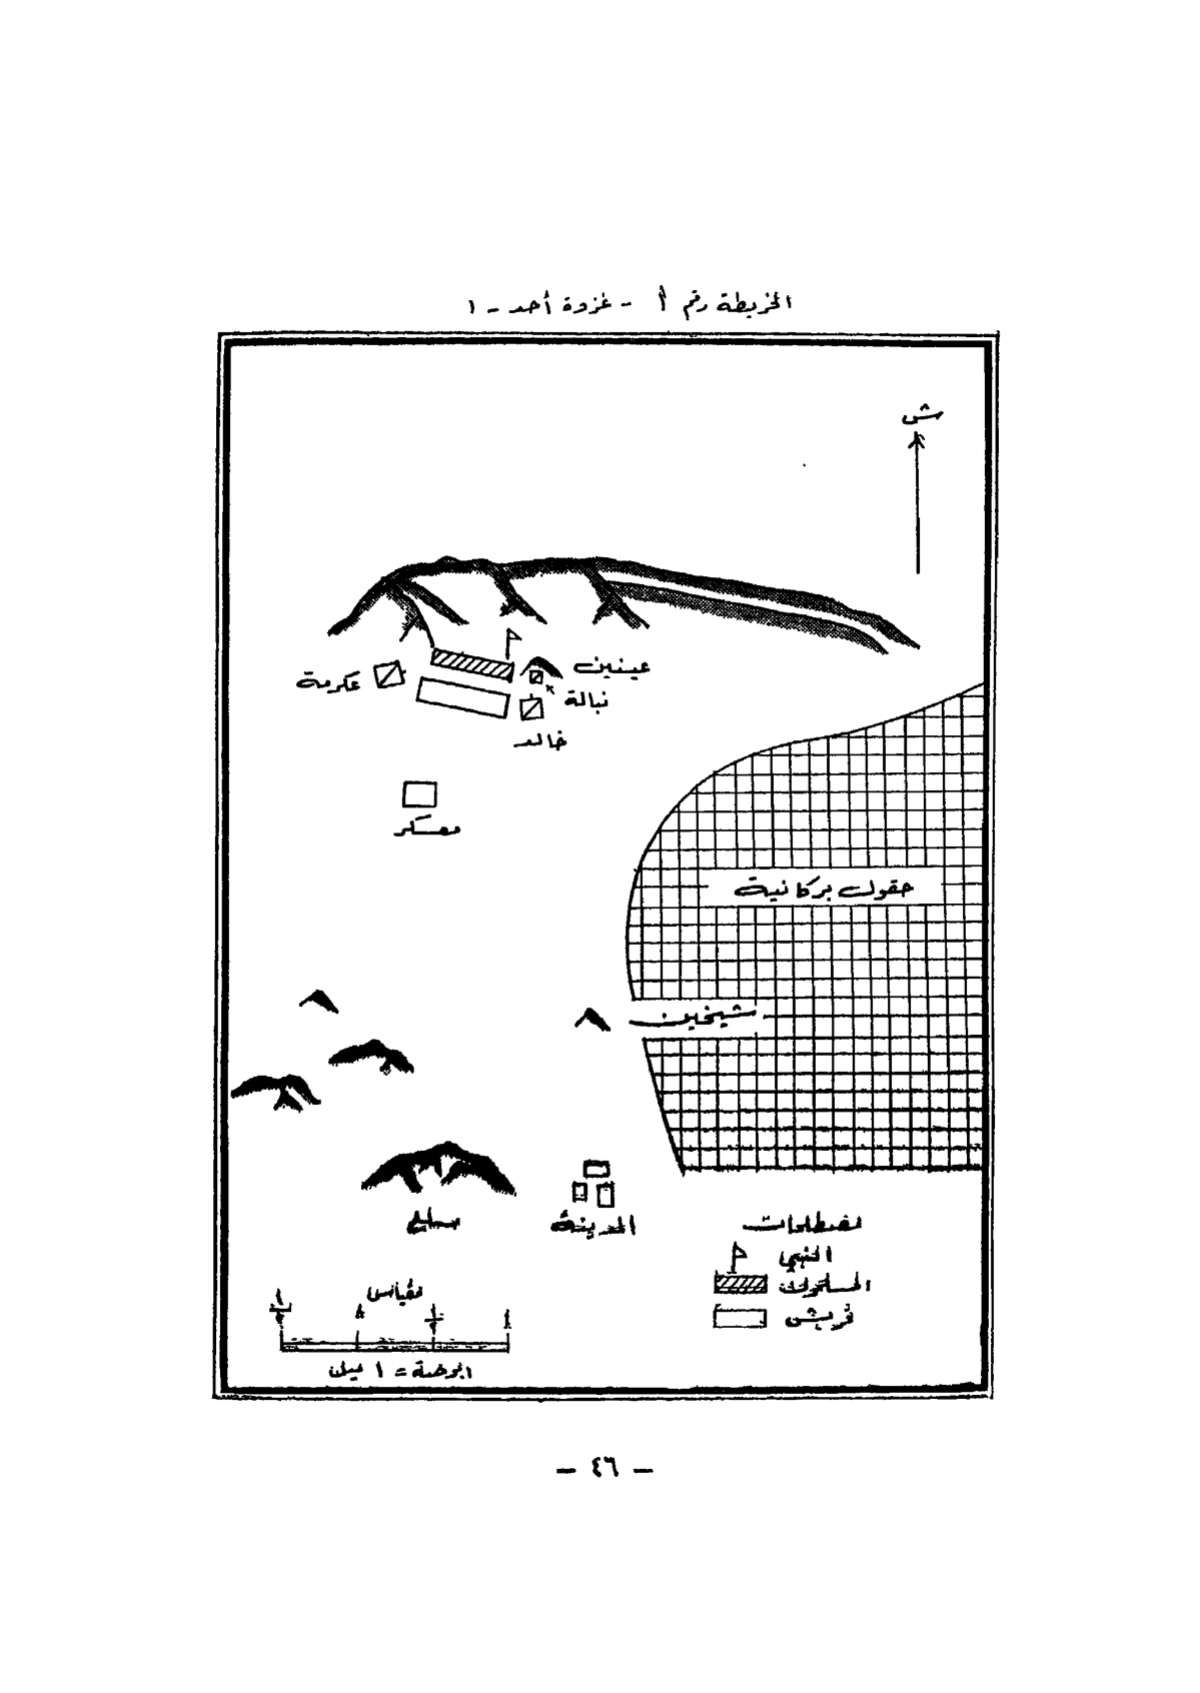 الخريطة رقم ١ - غزوة أحد - ١
ش
عينين
عكرمة
نبالة
خالد
معسكر
حقول بركانية
شيخين
سلع
المدينة
مصطلحات
النبي
المسلمون
قريش
مقياس
١/٢ ٠ ١/٢ ١
البوصة = ١ ميل
- ٤٦ -